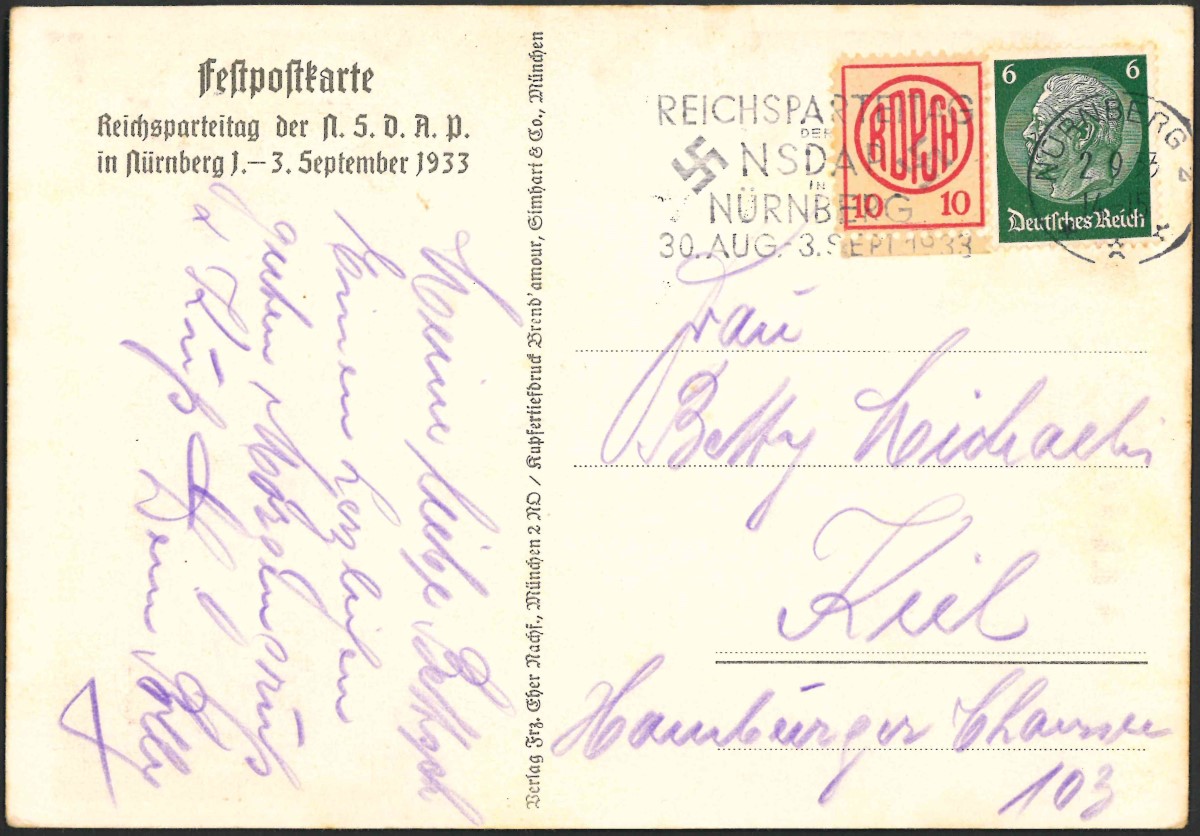 Festpostkarte
Reichsparteitag der N. S. D. A. P.
in Nürnberg 1.—3. September 1933
Meine liebe
Einen herzlichen
guten Morgengruß
u. Kuß
Dein
Verlag Frz. Eher Nachf., München 2 NO / Kupfertiefdruck Brend'amour, Simhart & Co., München
REICHSPARTEITAG
DER
NSDAP
IN
NÜRNBERG
30. AUG.-3. SEPT. 1933
10 10
6 6
Deutsches Reich
NÜRNBERG 2
2 9 3
Frau
Betty Michaelis
Kiel
Hamburger Chaussee
103